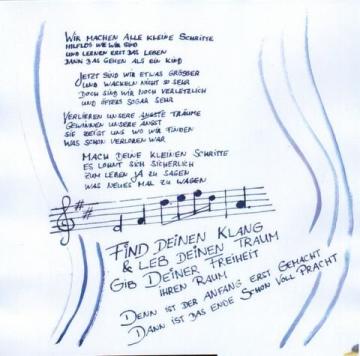 WIR MACHEN ALLE KLEINE SCHRITTE
HILFLOS WIE WIR SIND
UND LERNEN ERST DAS LEBEN
DANN DAS GEHEN ALS EIN KIND
JETZT SIND WIR ETWAS GRÖßER
UND WACKELN NICHT SO SEHR
DOCH SIND WIR NOCH VERLETZLICH
UND ÖFTERS SOGAR SEHR
VERLIEREN UNSERE TRÄUME
GEWINNEN UNSERE ANGST
SIE ZEIGT UNS WO WIR FINDEN
WAS SCHON VERLOREN WAR
MACH DEINE KLEINEN SCHRITTE
ES LOHNT SICH SICHERLICH
ZUM LEBEN JA ZU SAGEN
WAS NEUES MAL ZU WAGEN
FIND DEINEN KLANG
& LEB DEINEN TRAUM
GIB DEINER FREIHEIT
IHREN RAUM
DENN IST DER ANFANG ERST GEMACHT
DANN IST DAS ENDE SCHON VOLL PRACHT